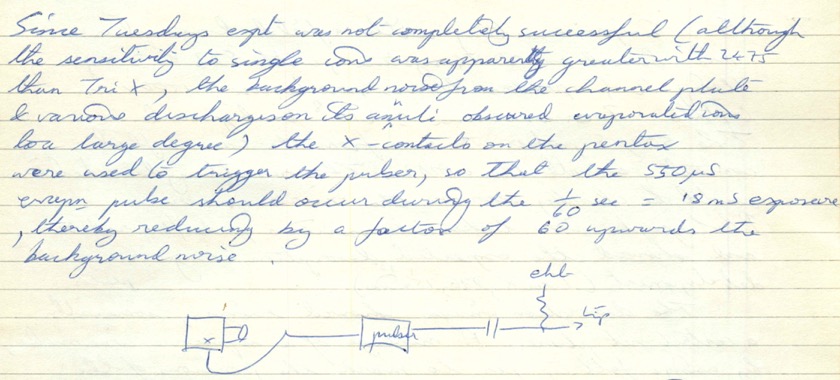 Since Tuesdays expt was not completely successful (although
the sensitivity to single ions was apparently greater with 2475
than Tri X, the background noise from the channel plate
& various discharges on its obscured evaporated ions
to a large degree) the X-contacts on the pentax
were used to trigger the pulser, so that the 550 μS
evapn pulse should occur during the 1/60 sec = 18 mS exposure
, thereby reducing by a factor of 60 upwards the
background noise.
eht
tip
x pulser